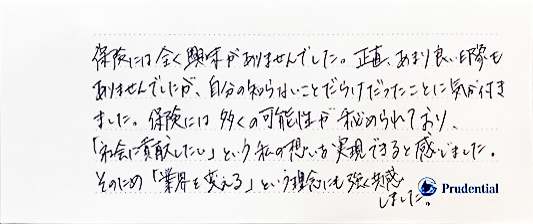 保険には全く興味がありませんでした。正直、あまり良い印象も
ありませんでしたが、自分の知らないことだらけだったことに気が付き
ました。保険には多くの可能性が秘められており、
「社会に貢献したい」という私の想いも実現できると感じました。
そのため「業界を変える」という理念にも強く共感
しました。
Prudential